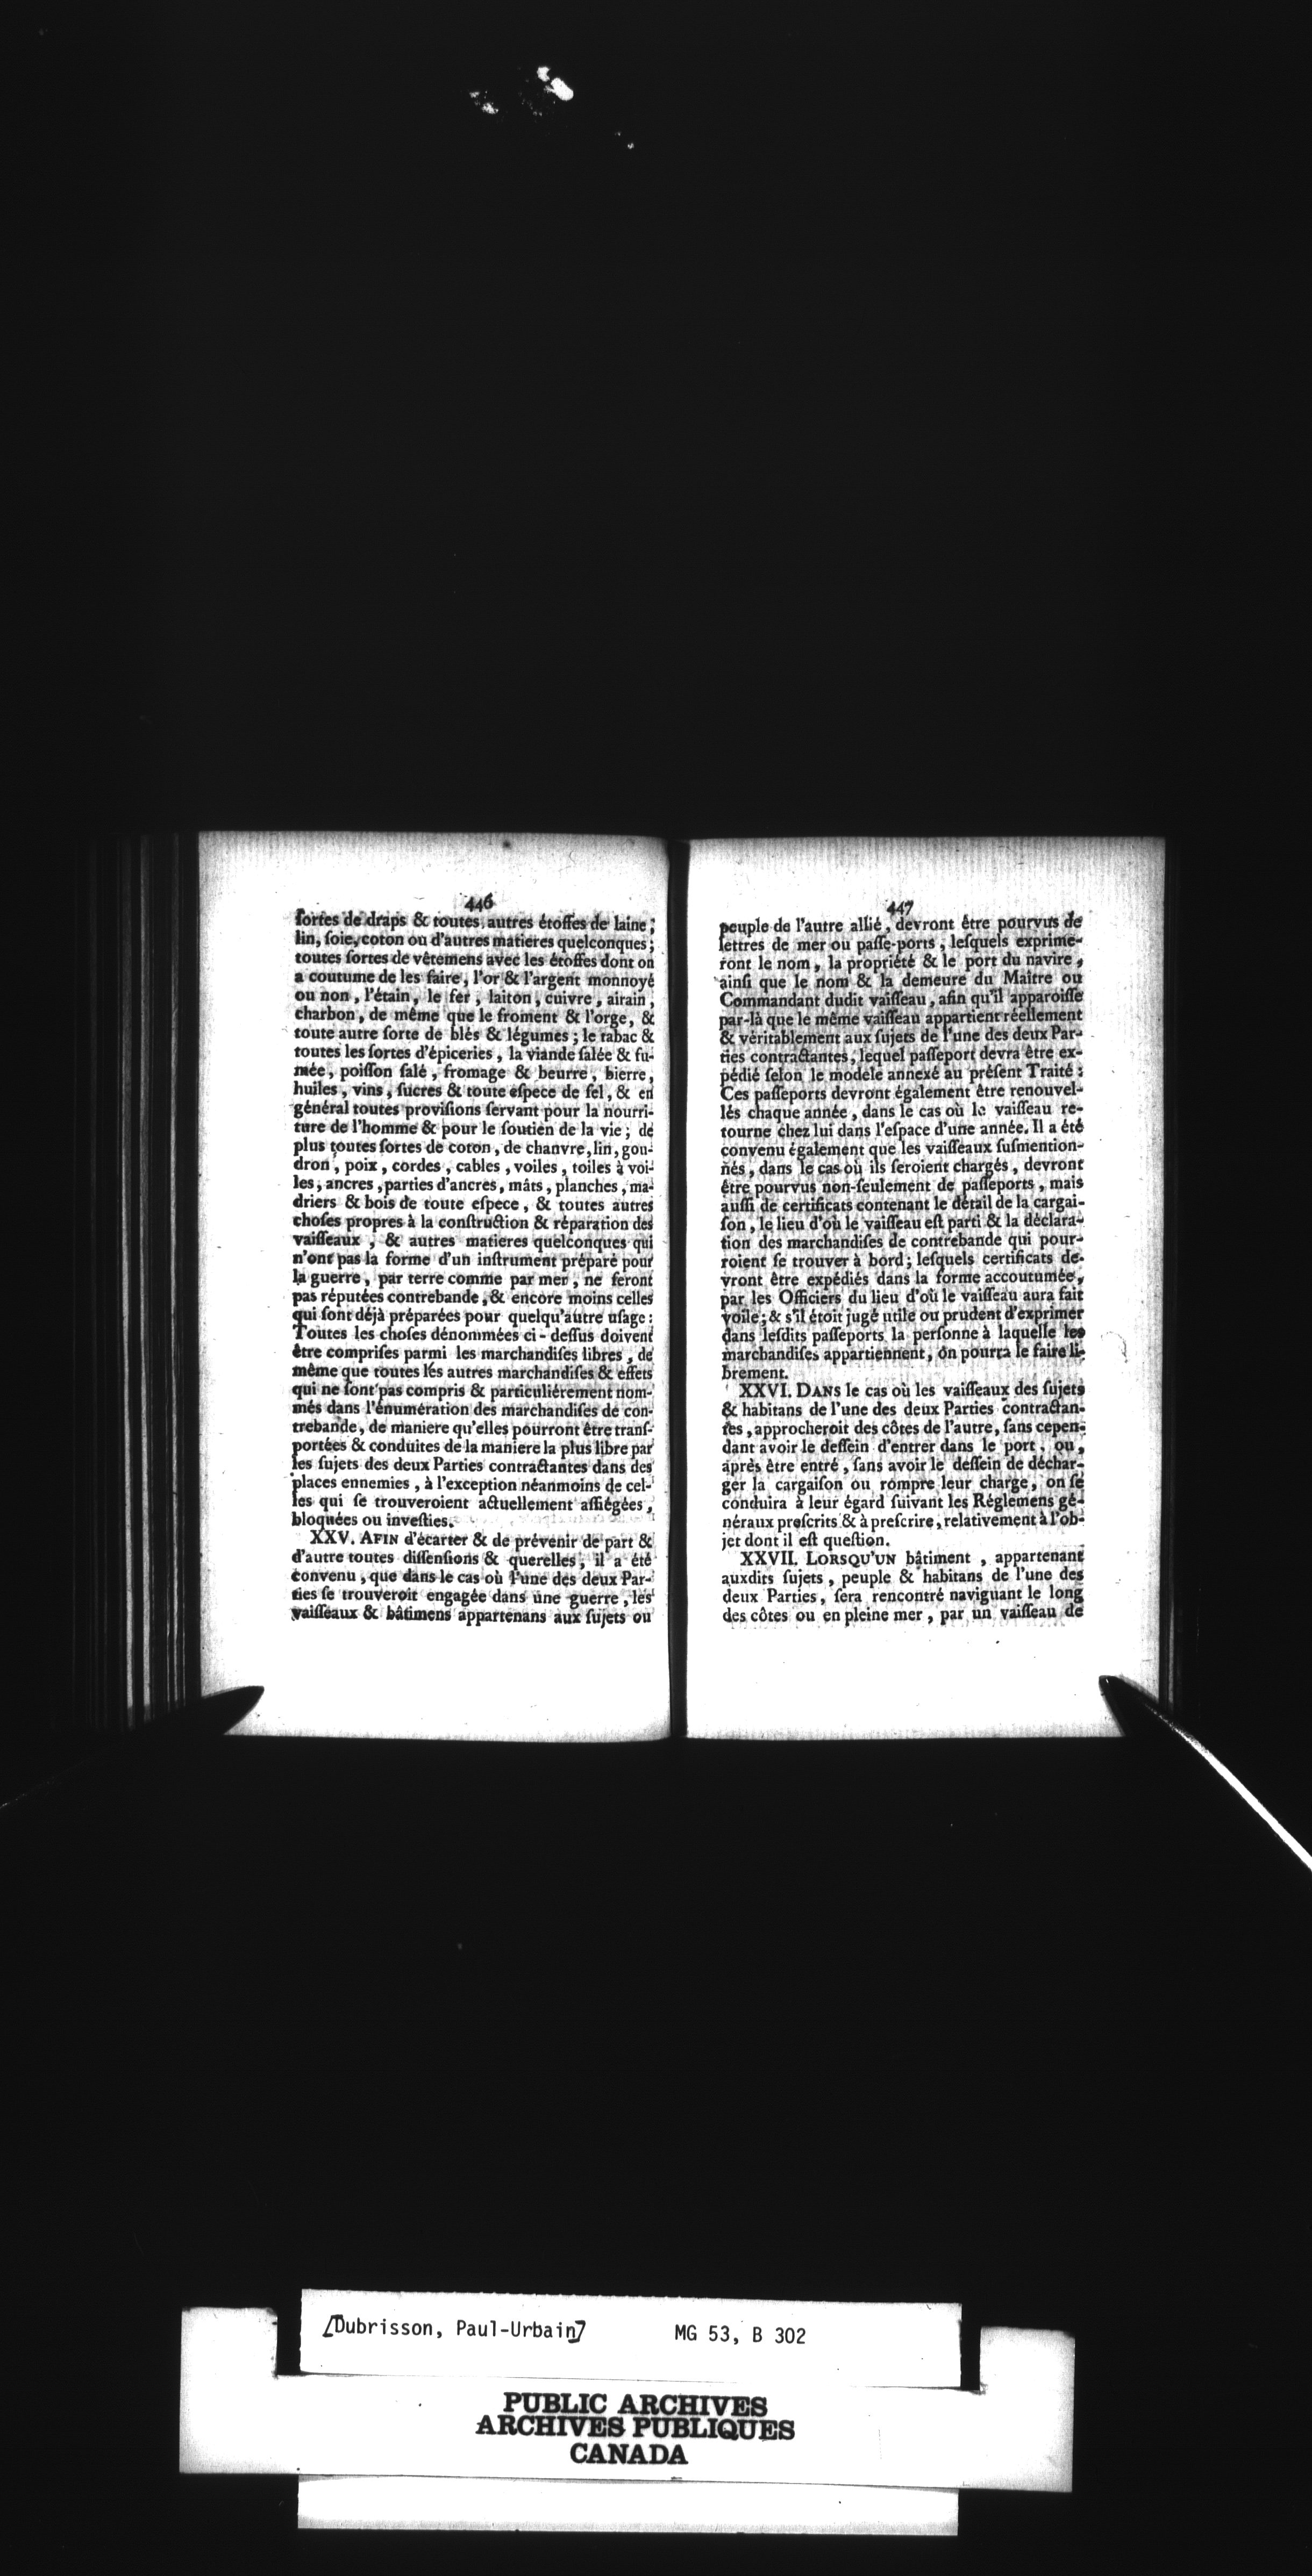 446
ſortes de draps & toutes autres étoffes de laine ;
lin, ſoie, coton ou d'autres matieres quelconques ;
toutes ſortes de vêtemens avec les étoffes dont on
a coutume de les faire, l'or & l'argent monnoyé
ou non, l'étain, le fer, laiton, cuivre, airain,
charbon, de même que le froment & l'orge, &
toute autre ſorte de blés & légumes ; le tabac &
toutes les ſortes d'épiceries, la viande ſalée & fu-
mée, poiſſon ſalé, fromage & beurre, bierre,
huiles, vins, ſucres & toute eſpece de ſel, & en
général toutes proviſions ſervant pour la nourri-
ture de l'homme & pour le ſoutien de la vie ; de
plus toutes ſortes de coton, de chanvre, lin, gou-
dron, poix, cordes, cables, voiles, toiles à voi-
les, ancres, parties d'ancres, mâts, planches, ma-
driers & bois de toute eſpece, & toutes autres
choſes propres à la conſtruction & réparation des
vaiſſeaux, & autres matieres quelconques qui
n'ont pas la forme d'un inſtrument préparé pour
la guerre, par terre comme par mer, ne feront
pas réputées contrebande, & encore moins celles
qui ſont déjà préparées pour quelqu'autre uſage :
Toutes les choſes dénommées ci-deſſus doivent
être compriſes parmi les marchandiſes libres, de
même que toutes les autres marchandiſes & effets
qui ne ſont pas compris & particuliérement nom-
més dans l'énumération des marchandiſes de con-
trebande, de maniere qu'elles pourront être tranſ-
portées & conduites de la maniere la plus libre par
les ſujets des deux Parties contractantes dans des
places ennemies, à l'exception néanmoins de cel-
les qui ſe trouveroient actuellement aſſiégées,
bloquées ou inveſties.
XXV. AFIN d'écarter & de prévenir de part &
d'autre toutes diſſenſions & querelles, il a été
convenu, que dans le cas où l'une des deux Par-
ties ſe trouveroit engagée dans une guerre, les
vaiſſeaux & bâtimens appartenans aux ſujets ou
447
peuple de l'autre allié, devront être pourvus de
lettres de mer ou paſſe-ports, leſquels exprime-
ront le nom, la propriété & le port du navire,
ainſi que le nom & la demeure du Maître ou
Commandant dudit vaiſſeau, afin qu'il apparoiſſe
par-là que le même vaiſſeau appartient réellement
& véritablement aux ſujets de l'une des deux Par-
ties contractantes, lequel paſſeport devra être ex-
pédié ſelon le modele annexé au préſent Traité :
Ces paſſeports devront également être renouvel-
lés chaque année, dans le cas où le vaiſſeau re-
tourne chez lui dans l'eſpace d'une année. Il a été
convenu également que les vaiſſeaux ſuſmention-
nés, dans le cas où ils ſeroient chargés, devront
être pourvus non-ſeulement de paſſeports, mais
auſſi de certificats contenant le détail de la cargai-
ſon, le lieu d'où le vaiſſeau eſt parti & la déclara-
tion des marchandiſes de contrebande qui pour-
roient ſe trouver à bord ; leſquels certificats de-
vront être expédiés dans la forme accoutumée,
par les Officiers du lieu d'où le vaiſſeau aura fait
voile ; & s'il étoit jugé utile ou prudent d'exprimer
dans leſdits paſſeports la perſonne à laquelle les
marchandiſes appartiennent, on pourra le faire li-
brement.
XXVI. DANS le cas où les vaiſſeaux des ſujets
& habitans de l'une des deux Parties contractan-
tes, approcheroit des côtes de l'autre, ſans cepen-
dant avoir le deſſein d'entrer dans le port, ou,
après être entré, ſans avoir le deſſein de déchar-
ger la cargaiſon ou rompre leur charge, on ſe
conduira à leur égard ſuivant les Réglemens gé-
néraux preſcrits & à preſcrire, relativement à l'ob-
jet dont il eſt queſtion.
XXVII. LORSQU'UN bâtiment, appartenant
auxdits ſujets, peuple & habitans de l'une des
deux Parties, ſera rencontré naviguant le long
des côtes ou en pleine mer, par un vaiſſeau de
[Dubrisson, Paul-Urbain] MG 53, B 302
PUBLIC ARCHIVES
ARCHIVES PUBLIQUES
CANADA